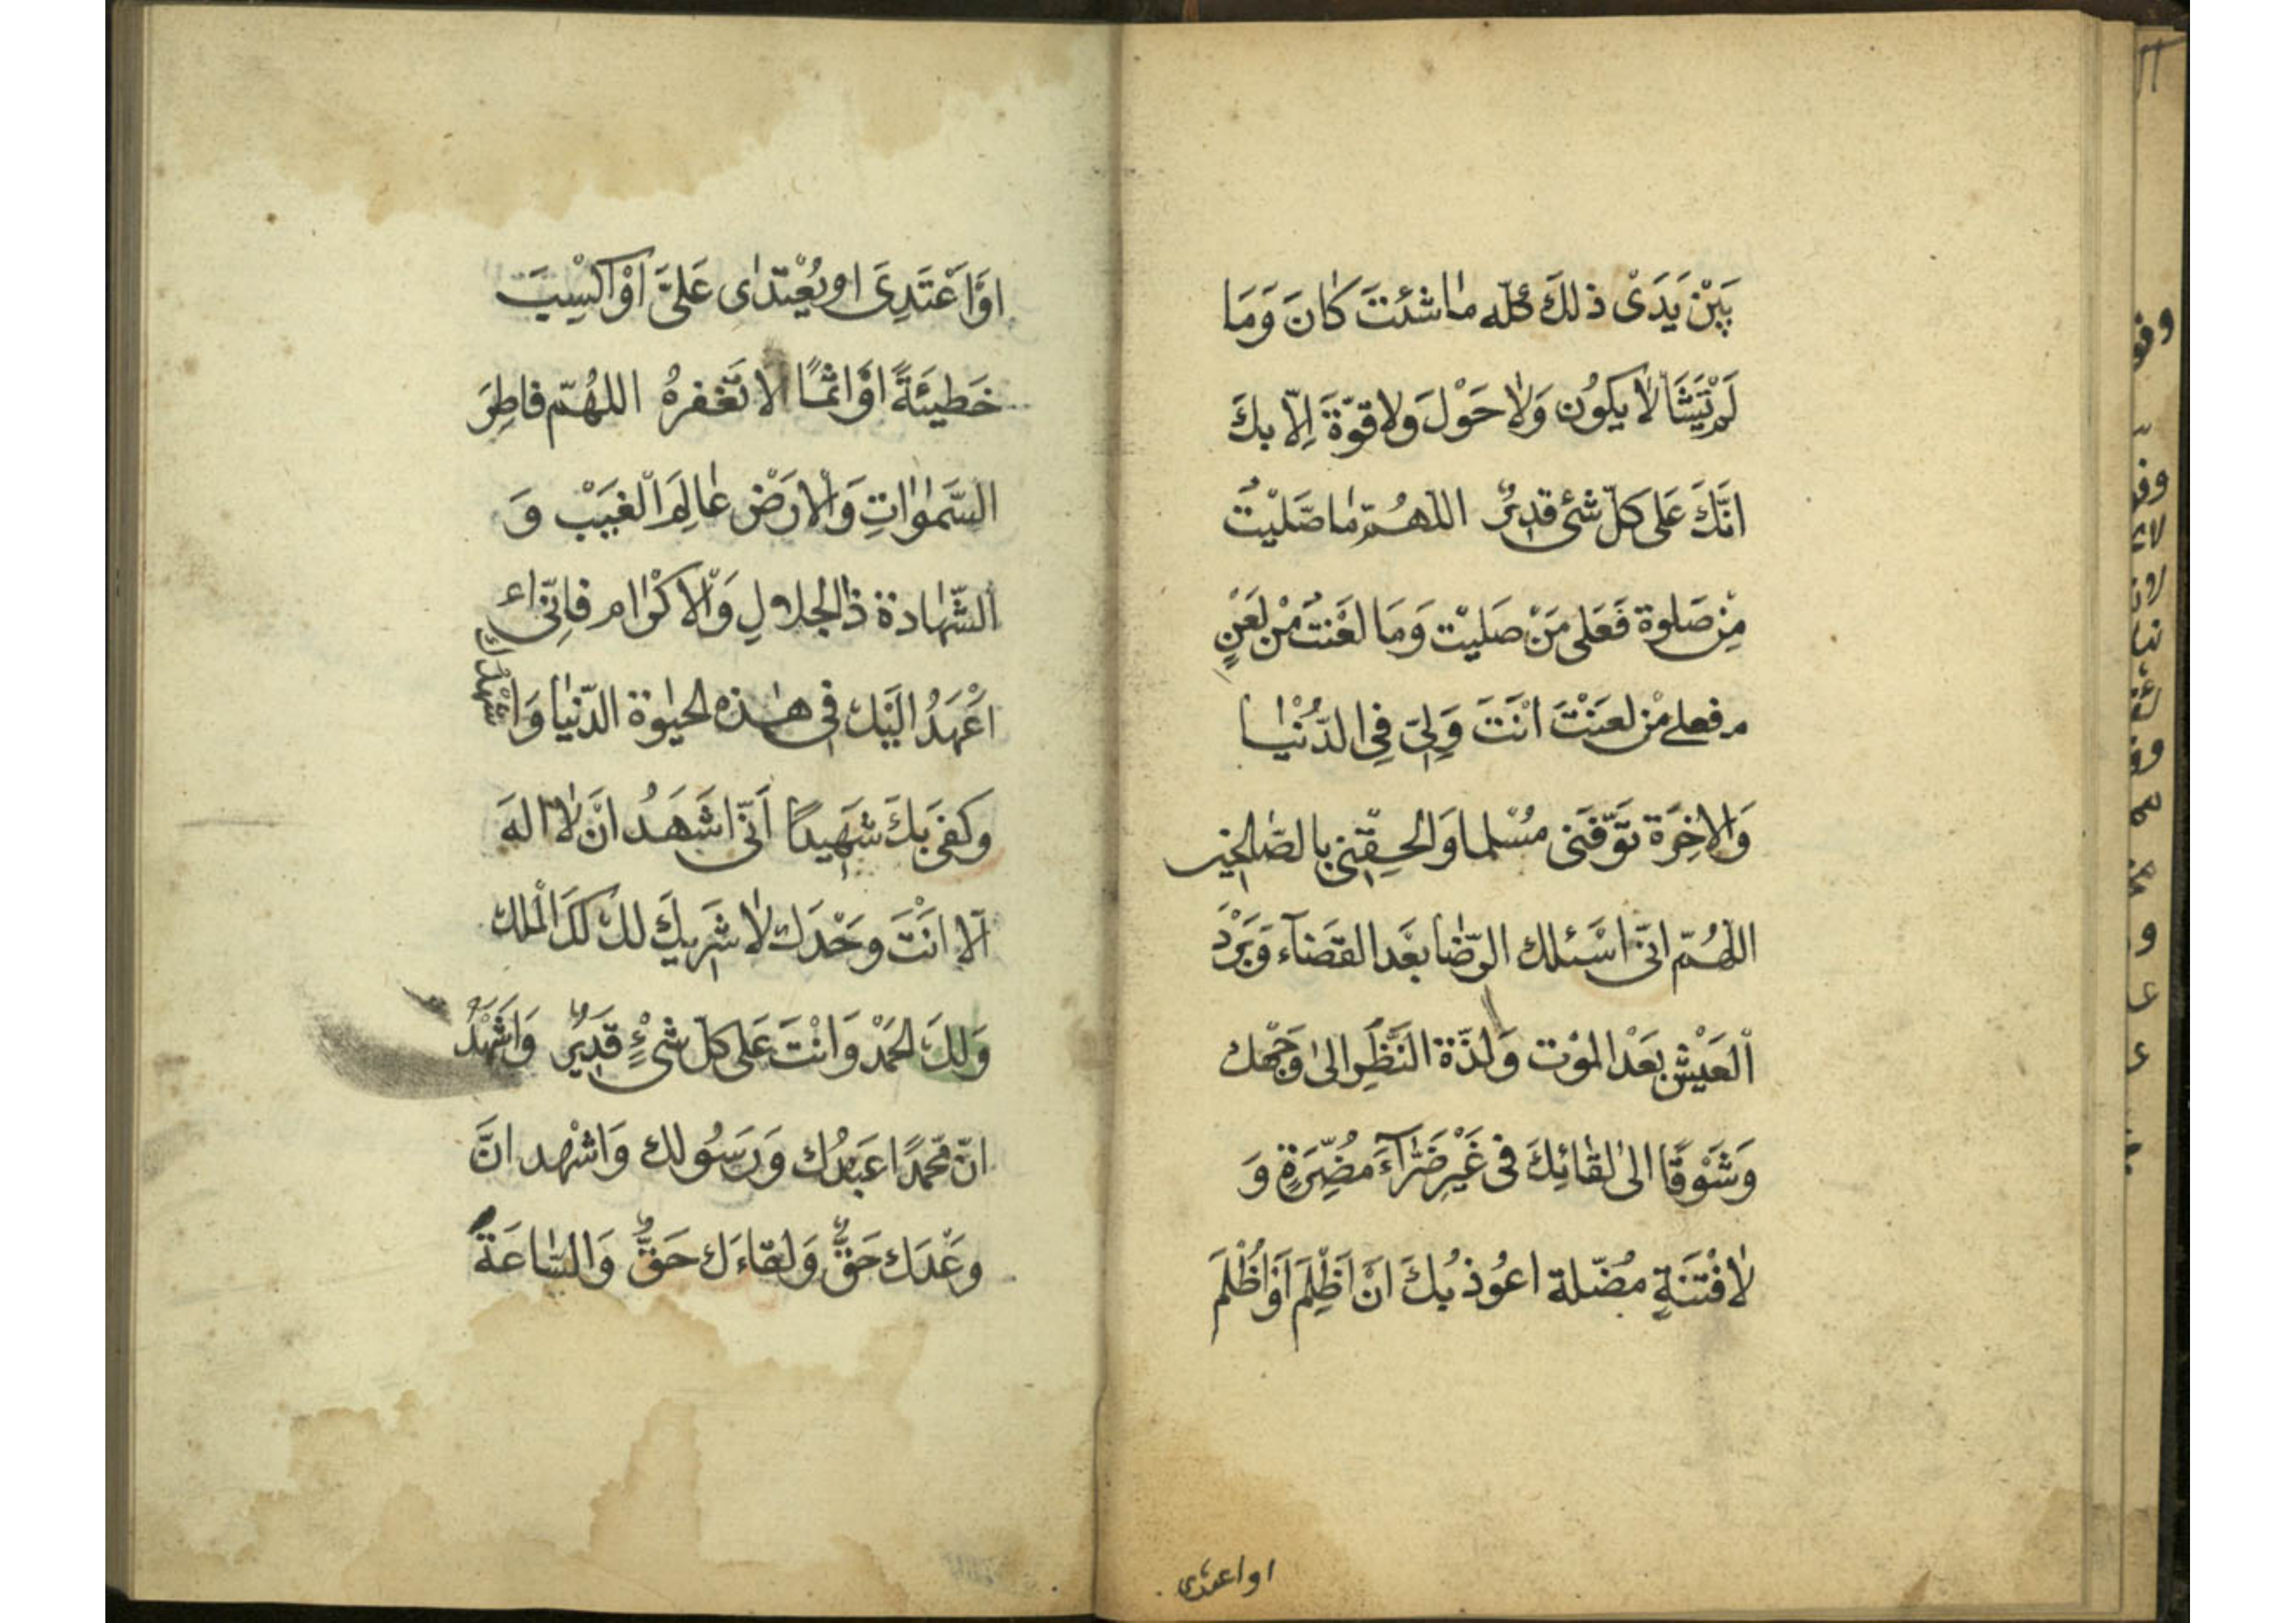 بَيْنَ يَدَىْ ذلكَ كله ماشئتَ كانَ وَمَا
لَمْ تَشَأْ لا يكوُن وَلا حَوْلَ وَلا قوّةَ اِلّا بكَ
انَّكَ عَلى كلّ شئ قديرٌ اللهُمّ ما صَلّيْتُ
مِنْ صَلوة فَعَلى مَنْ صَليْت وَمَا لعَنْتُ مْن لَعَنٍ
فعلى مْن لعَنْتَ انْتَ وَلِيّ فِي الدُّنْيا
وَالاخِرَة تَوَّفَنى مُسْلما وَالحِقْنى بالصّالحين
اللهُمّ انّى اسْئلك الرّضا بعْدَ القَضآء وَبَرْدَ
العَيْش بعْدَ الموْت وَلذّة النَّظَرِ الى وَجْهك
وَشَوْقًا الى لقائِكَ فى غَيْرِ ضَرّآءَ مُضِّرَةٍ وَ
لا فْتنَةٍ مُضّلة اعوُذ بُكَ انْ اَظْلِمَ اَوْ اُظْلَمَ
او اعتدى
اوْ اَعْتَدِىَ او يُعْتدى عَلىَّ اوْ اكسِبَ
خَطيئَةً اوْ اثْمًا لا تَغْفرهُ اللهُمّ فاطِرَ
السّموٰاتِ وَالارَضْ عالِمَ الْغَيبْ وَ
الشّهادة ذا الجلال وَالاكرْام فانّى اء
اعْهَدُ اليْك فى هذه الحيٰوة الدّنْيا وَاشْهدُك
وَكفى بكَ شَهِيدًا اَنّى اشَهَدُ انْ لا الهَ
الّا انْتَ وحَدَك لا شَرِيكَ لكَ لكَ الْملك
وَلكَ الحَمْدُ وَانْتَ عَلى كلّ شئٍْ قَديرٌ وَاشْهَدُ
انّ محَمّدًا عَبدُك وَرَسوُلك وَاشْهد انَّ
وعْدَك حَقٌّ وَلقاءَك حَقٌّ وَالسّاعَةَ